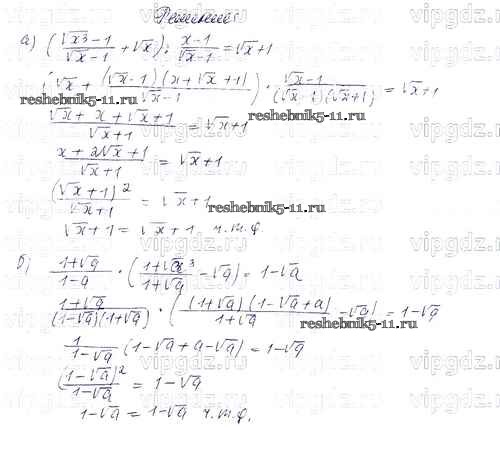 Решение
а) (√x³-1 / √x-1 + √x) : x-1 / √x-1 = √x+1
(√x + (√x-1)(x+√x+1) / √x-1) · √x-1 / (√x-1)(√x+1) = √x+1
reshebnik5-11.ru
√x + x + √x+1 / √x+1 = √x+1
x+2√x+1 / √x+1 = √x+1
(√x+1)² / √x+1 = √x+1
reshebnik5-11.ru
√x+1 = √x+1 ч.т.д.
б) 1+√a / 1-a · (1+√a³ / 1+√a - √a) = 1-√a
1+√a / (1-√a)(1+√a) · ((1+√a)(1-√a+a) / 1+√a - √a) = 1-√a
reshebnik5-11.ru
1 / 1-√a (1-√a+a-√a) = 1-√a
(1-√a)² / 1-√a = 1-√a
1-√a = 1-√a ч.т.д.
vipgdz.ru